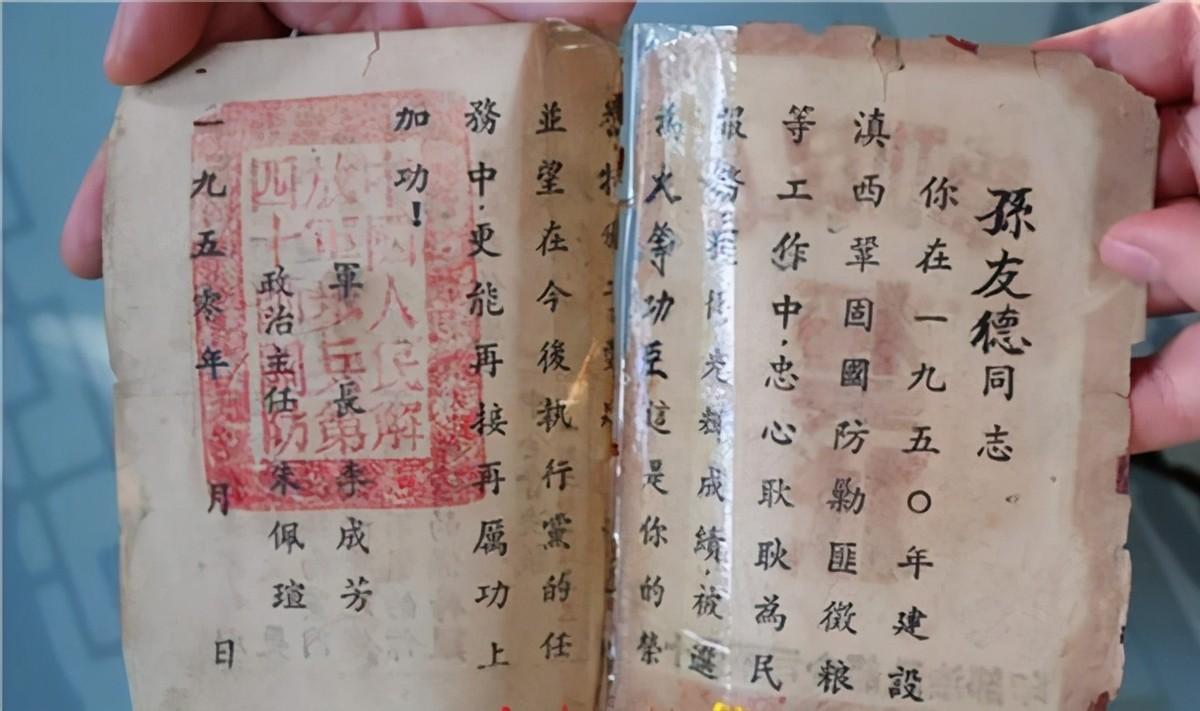 孫友德同志
你在一九五〇年建設
滇西鞏固國防勦匪徵粮
等工作中,忠心耿耿為民
務 成績,被選
為 等功臣這是你的榮
特
並望在今後執行黨的任
務中,更能再接再厲功上
加功!
軍長 李成芳
政治主任 朱佩瑄
一九五零年 月 日
中國人民解
放軍步兵第
四十 防